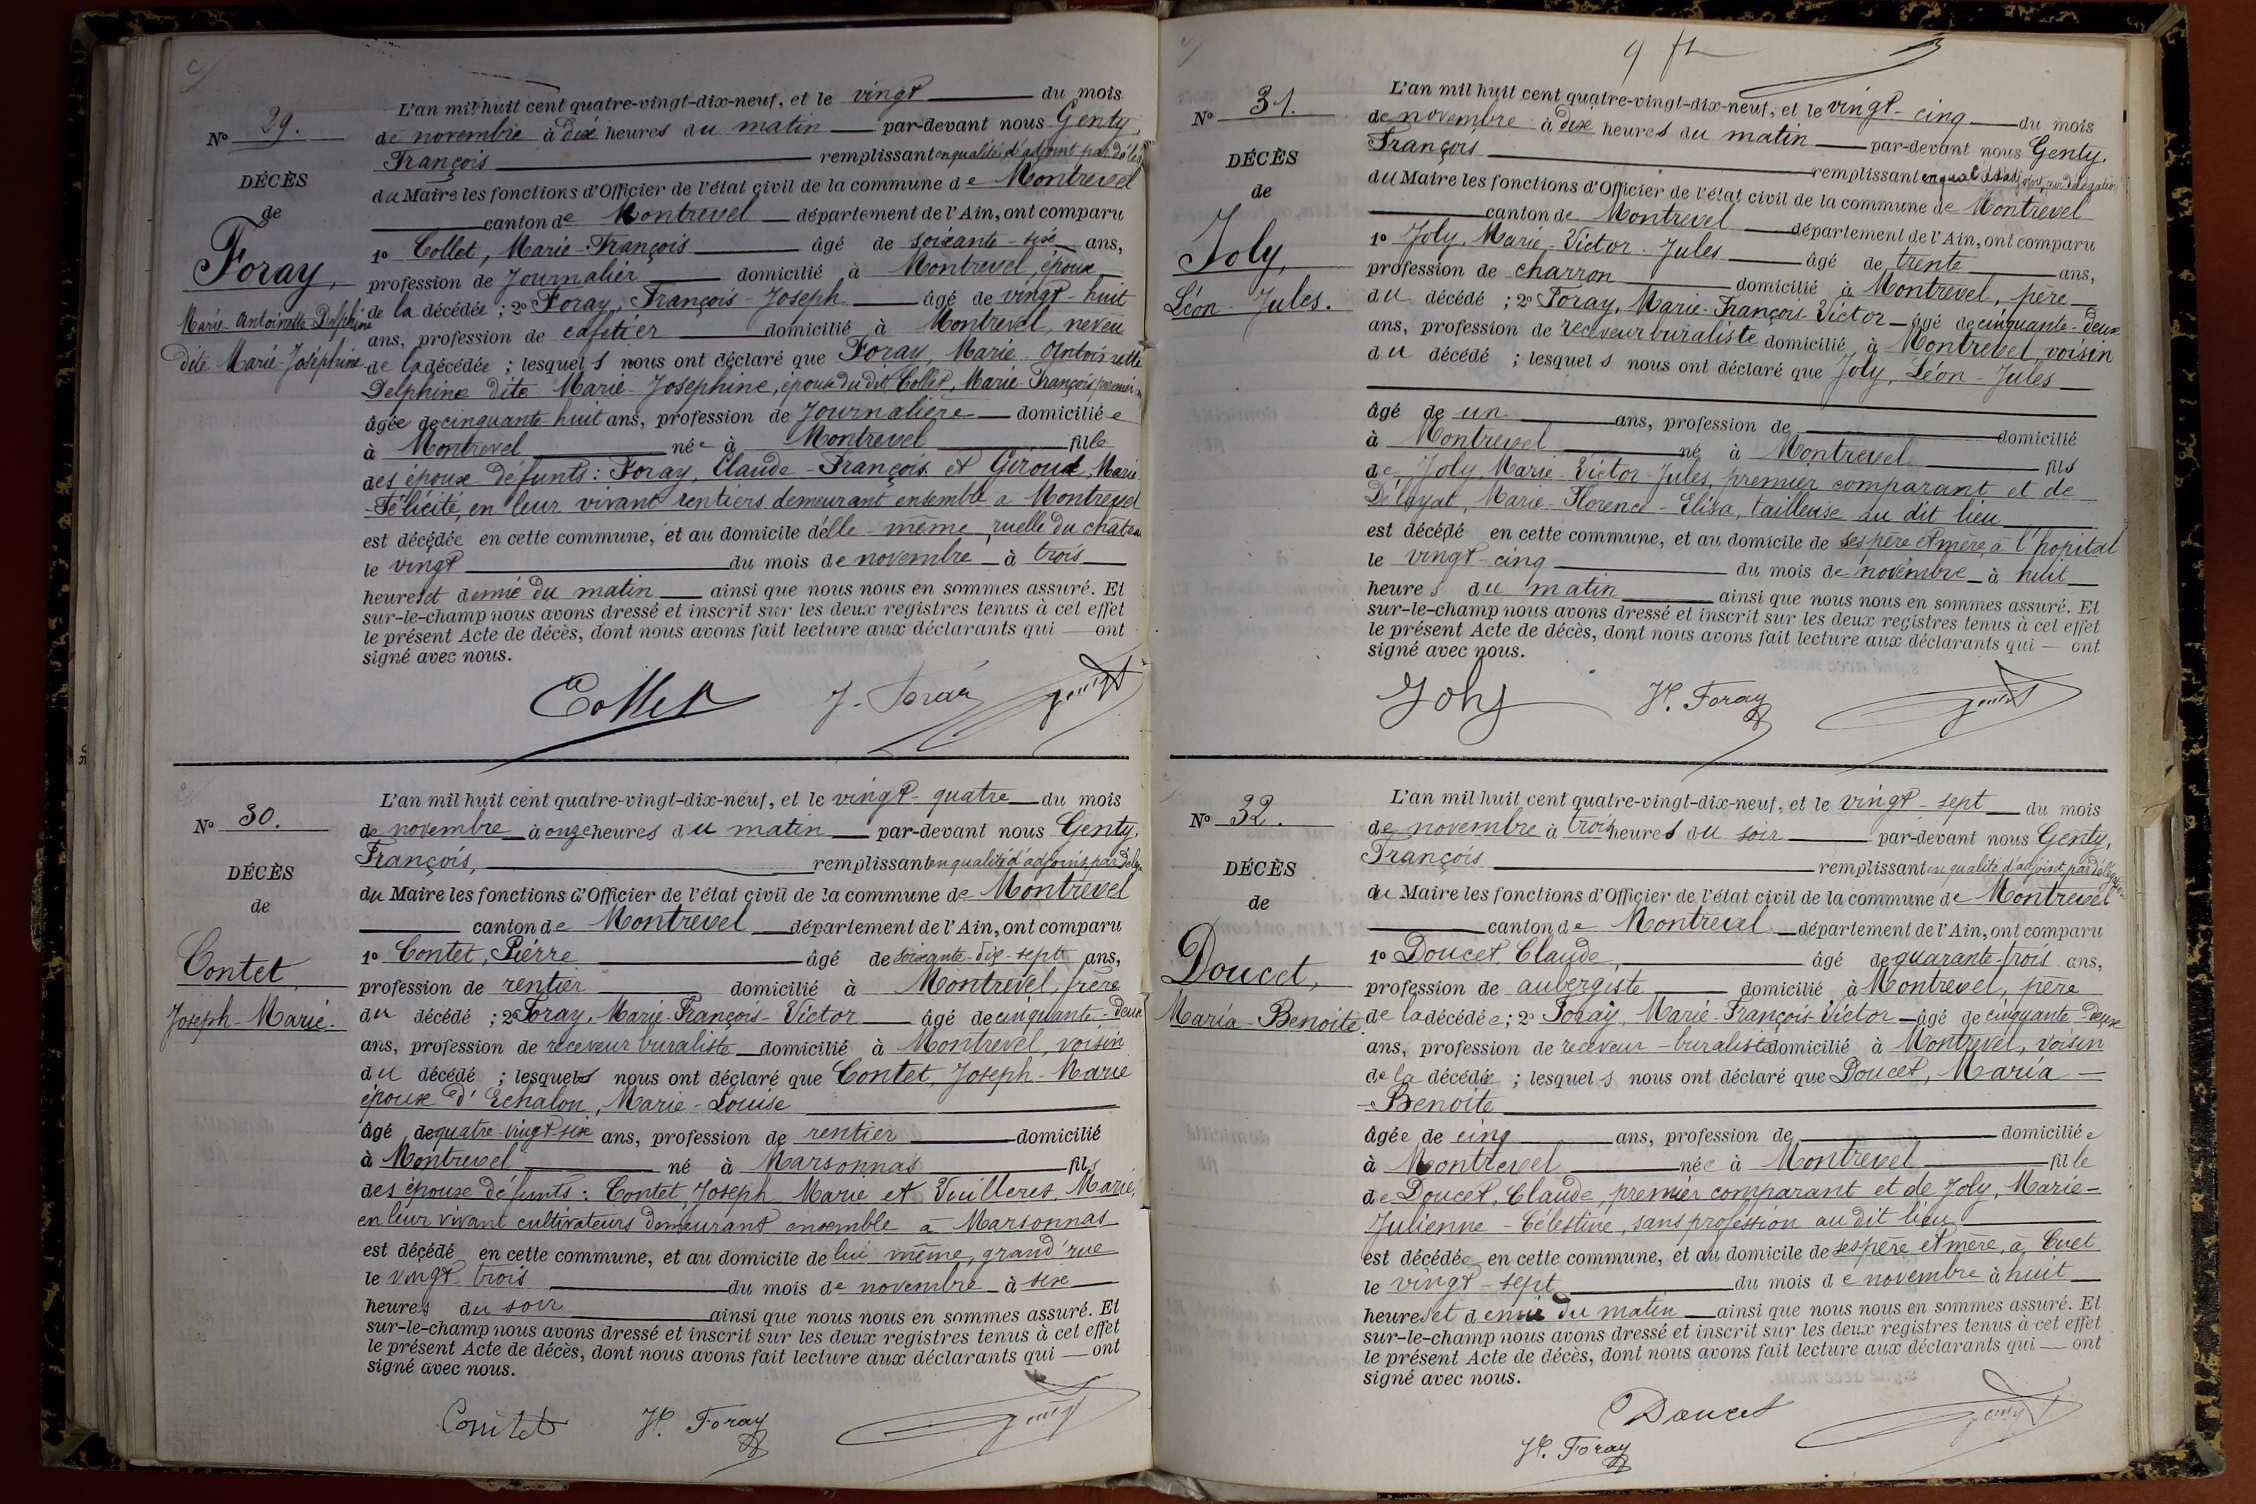 N° 29.
DÉCÈS
de
Foray,
Marie-Antoinette Delphine
dite Marie-Joséphine
L'an mil huit cent quatre-vingt-dix-neuf, et le vingt du mois
de novembre à dix heures du matin par-devant nous Genty,
François remplissant en qualité d'adjoint par délég
du Maire les fonctions d'Officier de l'état civil de la commune de Montrevel
canton de Montrevel département de l'Ain, ont comparu
1° Collet, Marie-François âgé de soixante-six ans,
profession de Journalier domicilié à Montrevel, époux
de la décédée ; 2° Foray, François-Joseph âgé de vingt-huit
ans, profession de cafetier domicilié à Montrevel, neveu
de la décédée ; lesquels nous ont déclaré que Foray, Marie-Antoinette
Delphine dite Marie-Josephine, épouse du dit Collet, Marie-François premier
âgée de cinquante huit ans, profession de Journalière domiciliée
à Montrevel née à Montrevel fille
des époux défunts : Foray, Claude-François et Giroud, Marie
Félicité, en leur vivant rentiers demeurant ensemble à Montrevel
est décédée en cette commune, et au domicile d'elle-même, ruelle du chateau
le vingt du mois de novembre à trois
heures et demie du matin ainsi que nous nous en sommes assuré. Et
sur-le-champ nous avons dressé et inscrit sur les deux registres tenus à cet effet
le présent Acte de décès, dont nous avons fait lecture aux déclarants qui — ont
signé avec nous.
Collet J. Foray Genty
N° 30.
DÉCÈS
de
Contet,
Joseph-Marie.
L'an mil huit cent quatre-vingt-dix-neuf, et le vingt-quatre du mois
de novembre à onze heures du matin par-devant nous Genty,
François, remplissant en qualité d'adjoint, par délég
du Maire les fonctions d'Officier de l'état civil de la commune de Montrevel
canton de Montrevel département de l'Ain, ont comparu
1° Contet, Pierre âgé de soixante-dix-sept ans,
profession de rentier domicilié à Montrevel, frère
du décédé ; 2° Foray, Marie-François-Victor âgé de cinquante-deux
ans, profession de receveur buraliste domicilié à Montrevel, voisin
du décédé ; lesquels nous ont déclaré que Contet, Joseph-Marie
époux d'Echalon, Marie-Louise
âgé de quatre-vingt-six ans, profession de rentier domicilié
à Montrevel né à Marsonnas fils
des époux défunts : Contet, Joseph Marie et Vuilleres, Marie,
en leur vivant cultivateurs demeurant ensemble à Marsonnas
est décédé en cette commune, et au domicile de lui même, grand'rue
le vingt trois du mois de novembre à six
heures du soir ainsi que nous nous en sommes assuré. Et
sur-le-champ nous avons dressé et inscrit sur les deux registres tenus à cet effet
le présent Acte de décès, dont nous avons fait lecture aux déclarants qui — ont
signé avec nous.
Contet Vt. Foray Genty
N° 31.
DÉCÈS
de
Joly,
Léon-Jules.
L'an mil huit cent quatre-vingt-dix-neuf, et le vingt-cinq du mois
de novembre à dix heures du matin par-devant nous Genty,
François remplissant en qualité d'adjoint, par délégation
du Maire les fonctions d'Officier de l'état civil de la commune de Montrevel
canton de Montrevel département de l'Ain, ont comparu
1° Joly, Marie-Victor-Jules âgé de trente ans,
profession de charron domicilié à Montrevel, père
du décédé ; 2° Foray, Marie-François-Victor âgé de cinquante-deux
ans, profession de receveur buraliste domicilié à Montrevel, voisin
du décédé ; lesquels nous ont déclaré que Joly, Léon-Jules
âgé de un ans, profession de domicilié
à Montrevel né à Montrevel fils
de Joly Marie-Victor-Jules, premier comparant et de
Délayat, Marie-Florence-Elisa, tailleuse au dit lieu
est décédé en cette commune, et au domicile de ses père et mère, à l'hopital
le vingt-cinq du mois de novembre à huit
heures du matin ainsi que nous nous en sommes assuré. Et
sur-le-champ nous avons dressé et inscrit sur les deux registres tenus à cet effet
le présent Acte de décès, dont nous avons fait lecture aux déclarants qui — ont
signé avec nous.
Joly Vt. Foray Genty
N° 32.
DÉCÈS
de
Doucet,
Maria-Benoite.
L'an mil huit cent quatre-vingt-dix-neuf, et le vingt-sept du mois
de novembre à trois heures du soir par-devant nous Genty,
François remplissant en qualité d'adjoint, par délégation
du Maire les fonctions d'Officier de l'état civil de la commune de Montrevel
canton de Montrevel département de l'Ain, ont comparu
1° Doucet, Claude, âgé de quarante-trois ans,
profession de aubergiste domicilié à Montrevel, père
de la décédée ; 2° Foray, Marie-François-Victor âgé de cinquante-deux
ans, profession de receveur-buraliste domicilié à Montrevel, voisin
de la décédée ; lesquels nous ont déclaré que Doucet, Maria-
Benoite
âgée de cinq ans, profession de domiciliée
à Montrevel née à Montrevel fille
de Doucet, Claude, premier comparant et de Joly, Marie-
Julienne-Célestine, sans profession au dit lieu
est décédée en cette commune, et au domicile de ses père et mère, à Cuet
le vingt-sept du mois de novembre à huit
heures et demie du matin ainsi que nous nous en sommes assuré. Et
sur-le-champ nous avons dressé et inscrit sur les deux registres tenus à cet effet
le présent Acte de décès, dont nous avons fait lecture aux déclarants qui — ont
signé avec nous.
Doucet Genty
Vt. Foray